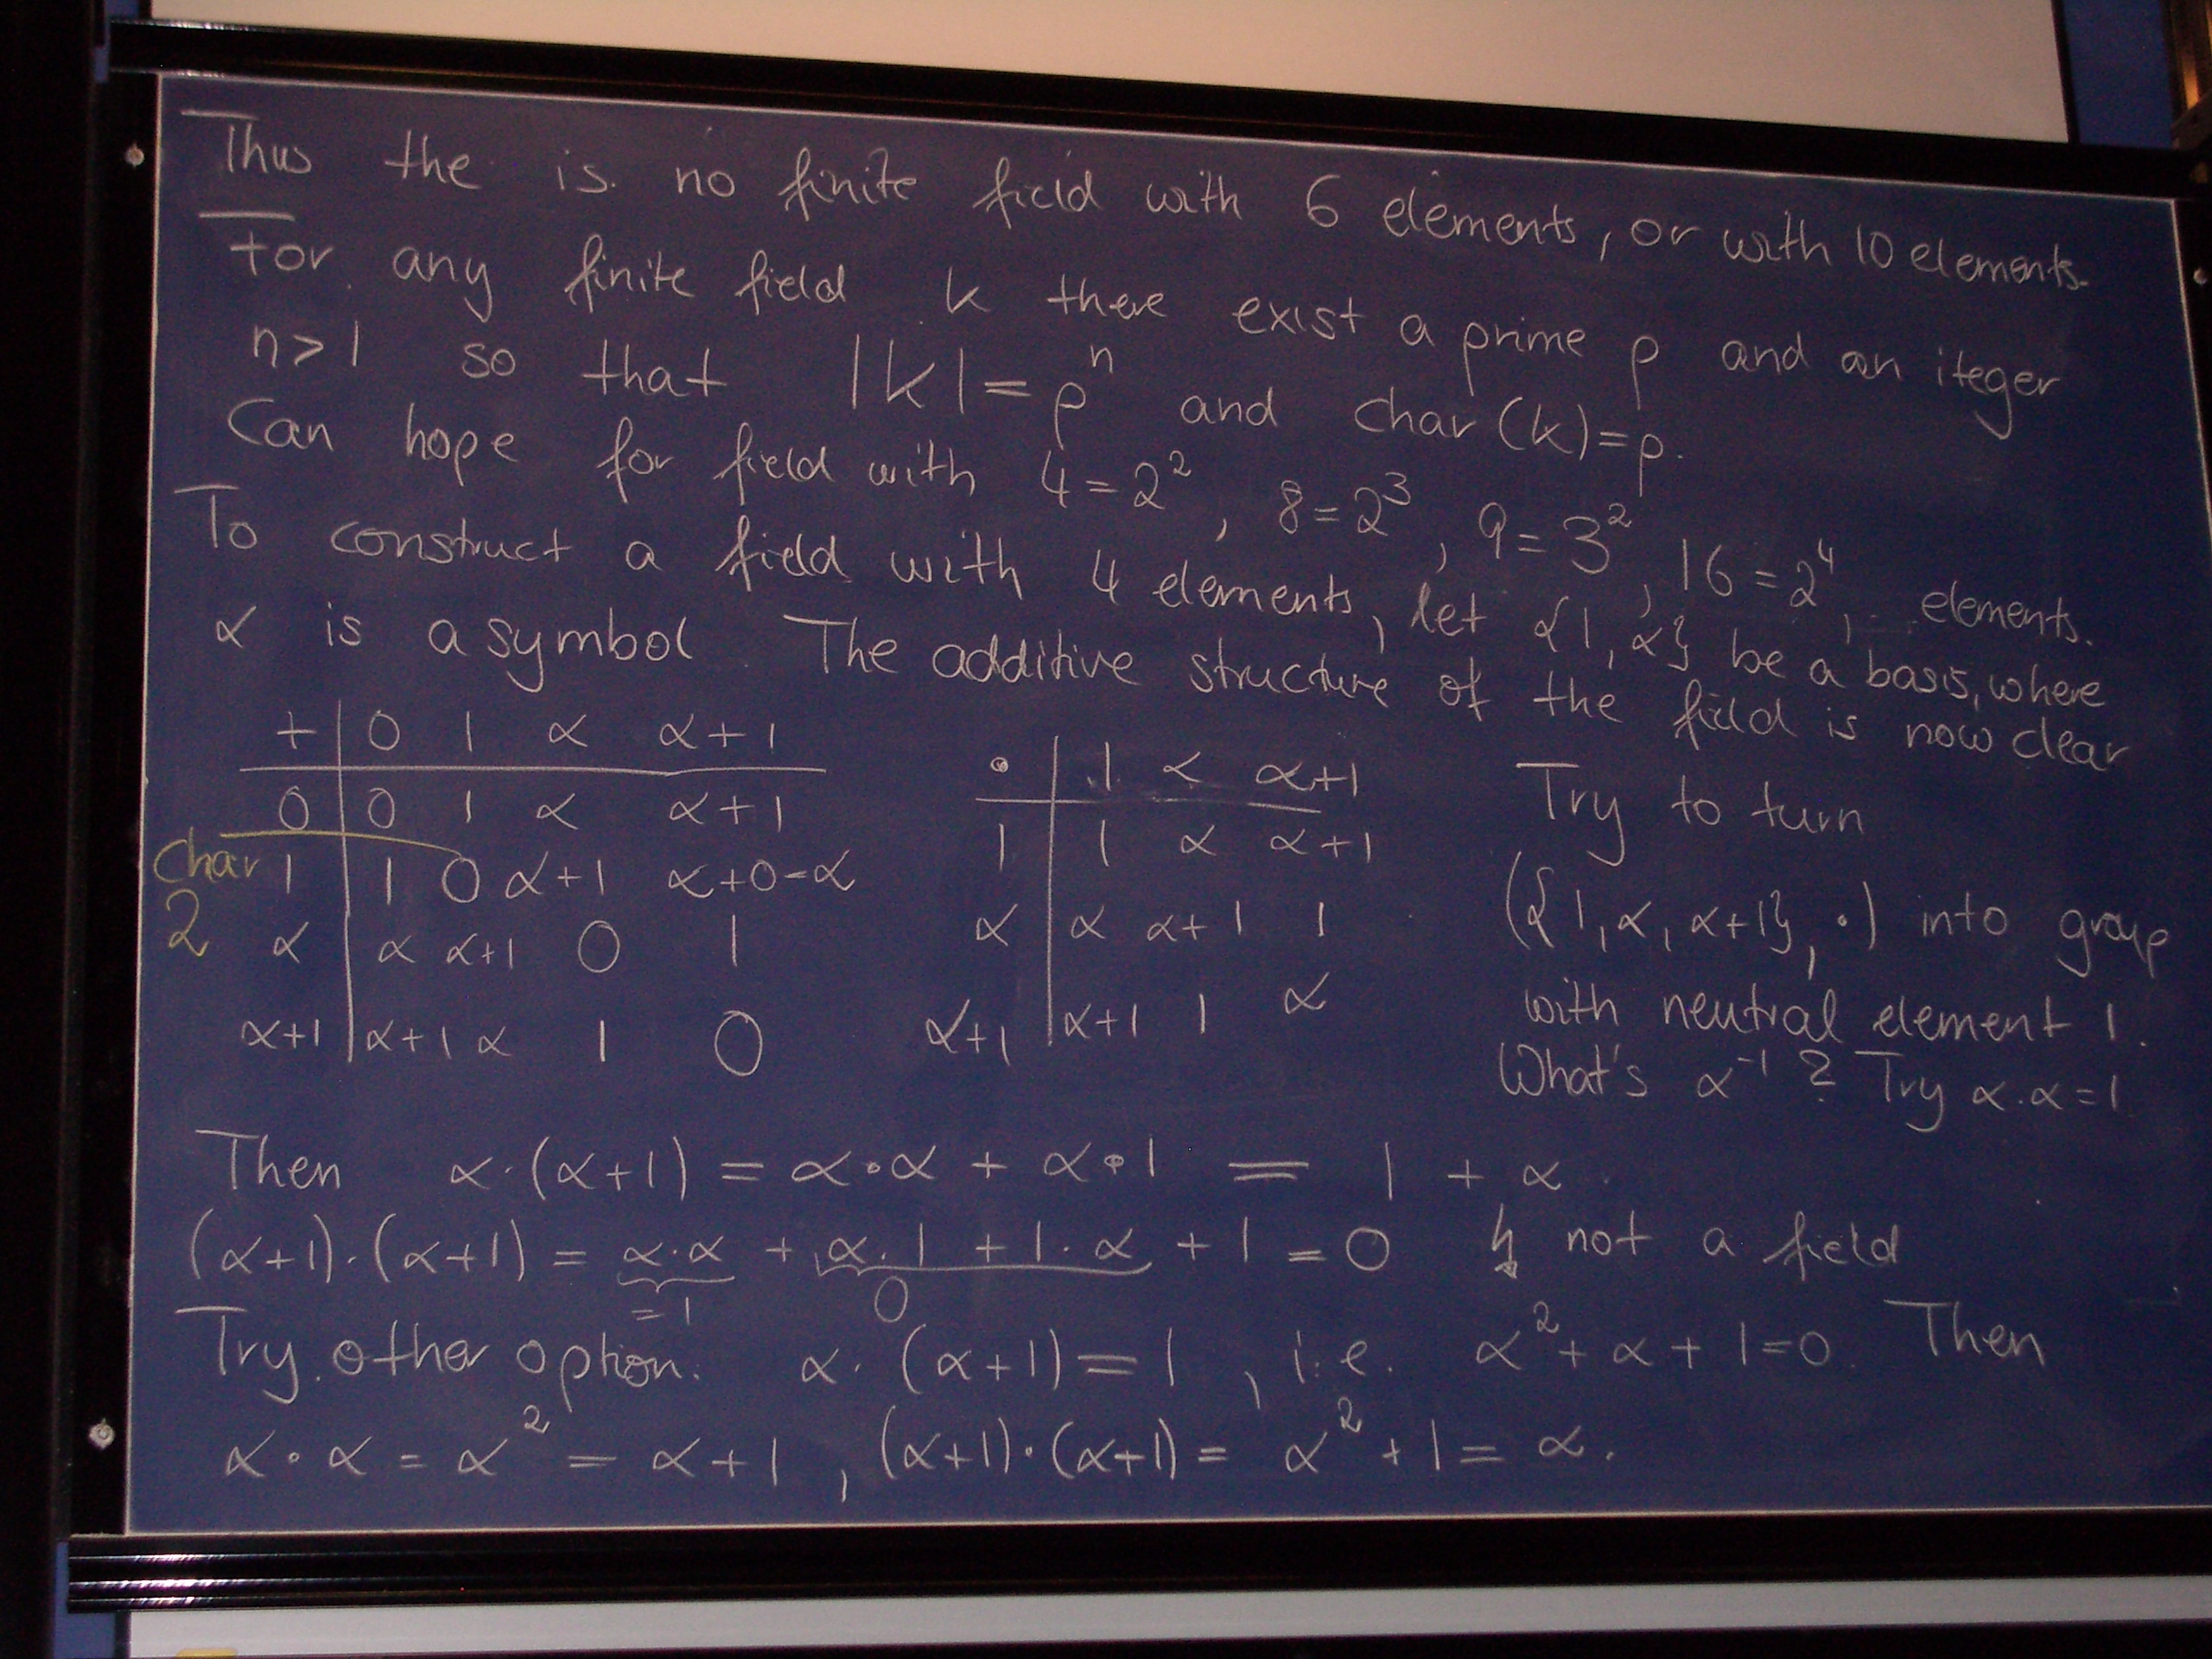 Thus the is no finite field with 6 elements, or with 10 elements.
For any finite field k there exist a prime p and an iteger
n>1 so that |k|=pⁿ and char(k)=p.
Can hope for field with 4=2², 8=2³, 9=3², 16=2⁴, ... elements.
To construct a field with 4 elements, let {1,α} be a basis, where
α is a symbol. The additive structure of the field is now clear
+ | 0 1 α α+1
0 | 0 1 α α+1
1 | 1 0 α+1 α+0=α
α | α α+1 0 1
α+1 | α+1 α 1 0
Char
2
· | 1 α α+1
1 | 1 α α+1
α | α α+1 1
α+1 | α+1 1 α
Try to turn
({1,α,α+1},·) into group
with neutral element 1.
What's α⁻¹? Try α.α=1
Then α·(α+1) = α·α + α·1 = 1 + α.
(α+1)·(α+1) = α·α + α·1 + 1·α + 1 = 0 ↯ not a field
=1 0
Try other option. α·(α+1)=1, i.e. α²+α+1=0. Then
α·α = α² = α+1, (α+1)·(α+1) = α²+1 = α.